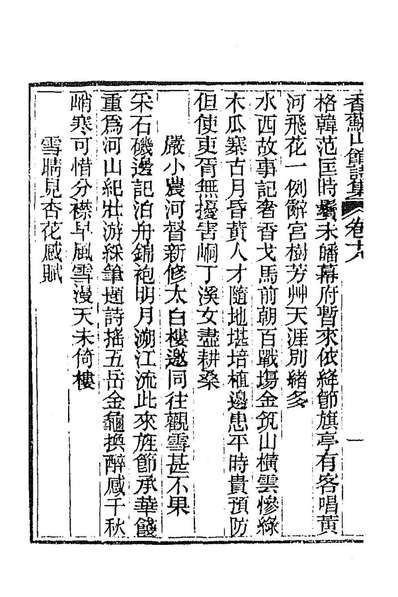 香蘇山館詩集 卷十八
一
格韓范匡時鬢未皤幕府暫來依絳節旗亭有客唱黃
河飛花一例辭宮樹芳艸天涯別緒多
水西故事記奢香戈馬前朝百戰場金筑山橫雲慘綠
木瓜寨古月昏黃人才隨地堪培植邊患平時貴預防
但使吏胥無擾害峒丁溪女盡耕桑
嚴小農河督新修太白樓邀同往觀雪甚不果
采石磯邊記泊舟錦袍明月溯江流此來旌節承華餞
重為河山紀壯游綵筆題詩搖五岳金龜換醉感千秋
峭寒可惜分襟早風雪漫天未倚樓
雪晴見杏花感賦